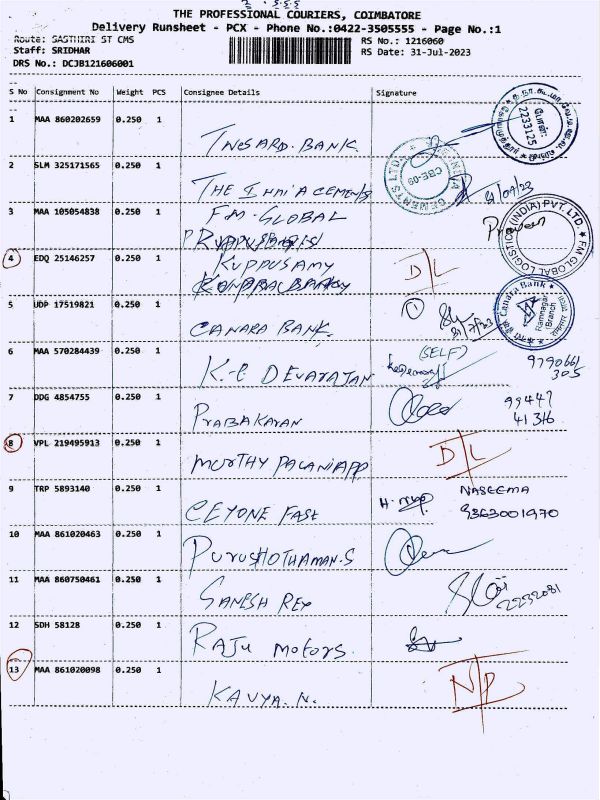 THE PROFESSIONAL COURIERS, COIMBATORE
Delivery Runsheet - PCX - Phone No.:0422-3505555 - Page No.:1
Route: SASTHIRI ST CMS RS No.: 1216060
Staff: SRIDHAR RS Date: 31-Jul-2023
DRS No.: DCJB121606001
S No Consignment No Weight PCS Consignee Details Signature
1 MAA 860202659 0.250 1
BANK
போன்: 2233125
2 SLM 325171565 0.250 1
THE INDIA CEMENTS
CEMENTS LTD. CBE-09
3 MAA 105054838 0.250 1
F.M. GLOBAL
FM GLOBAL LOGISTICS (INDIA) PVT. LTD.
4 EDQ 25146257 0.250 1
KUPPUSAMY
D/L
5 UDP 17519821 0.250 1
CANARA BANK.
1
Canara Bank Ramnagar Branch
6 MAA 570284439 0.250 1
K.P. DEVARAJAN
(SELF)
9790661
305
7 DDG 4854755 0.250 1
PRABAKARAN
99447
41316
8 VPL 219495913 0.250 1
MURTHY PALANIAPP
D/L
9 TRP 5893140 0.250 1
CEYONE FAST
NASEEMA
9363001970
10 MAA 861020463 0.250 1
PURUSHOTHAMAN.S
11 MAA 860750461 0.250 1
2232081
12 SDH 58128 0.250 1
RAJU Motors.
13 MAA 861020098 0.250 1
KAVYA.N.
N/P